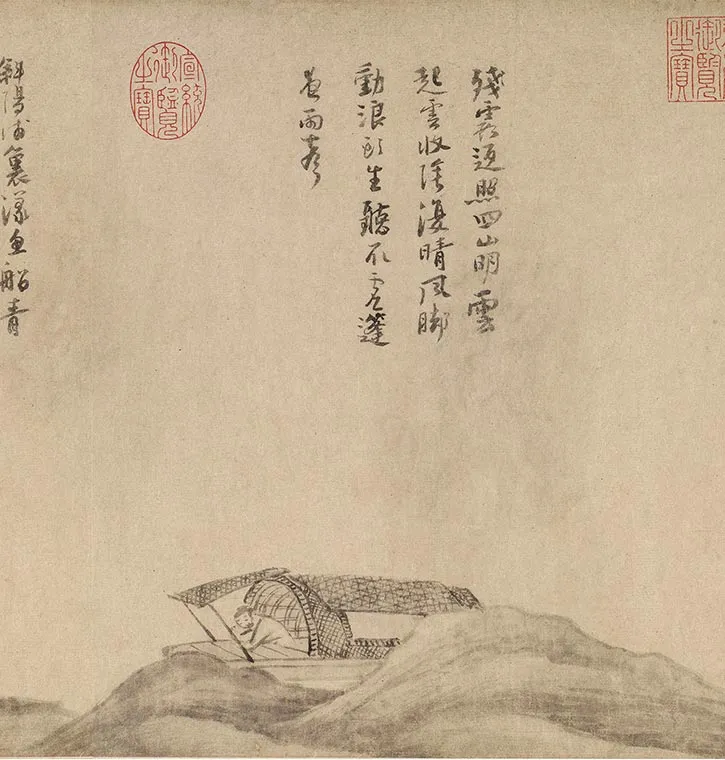 御覽之寶
殘霞返照四山明雲
起雲收陰復晴風腳
動浪頭生聽取虛篷
夜雨聲
宣統御覽之寶
斜陽浦裏漾魚船青